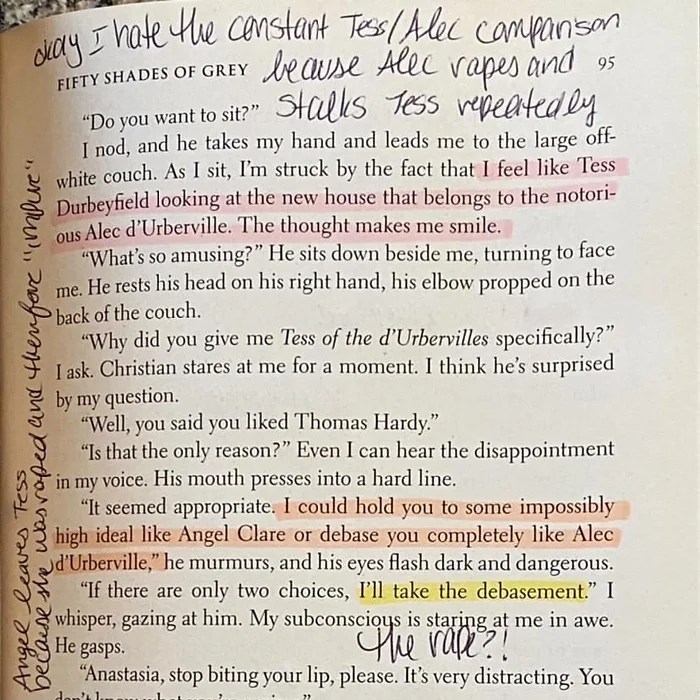 okay I hate the constant Tess/Alec comparison
because Alec rapes and
stalks Tess repeatedly
FIFTY SHADES OF GREY 95
“Do you want to sit?”
I nod, and he takes my hand and leads me to the large off-
white couch. As I sit, I’m struck by the fact that I feel like Tess
Durbeyfield looking at the new house that belongs to the notori-
ous Alec d’Urberville. The thought makes me smile.
“What’s so amusing?” He sits down beside me, turning to face
me. He rests his head on his right hand, his elbow propped on the
back of the couch.
“Why did you give me Tess of the d’Urbervilles specifically?”
I ask. Christian stares at me for a moment. I think he’s surprised
by my question.
“Well, you said you liked Thomas Hardy.”
“Is that the only reason?” Even I can hear the disappointment
in my voice. His mouth presses into a hard line.
“It seemed appropriate. I could hold you to some impossibly
high ideal like Angel Clare or debase you completely like Alec
d’Urberville,” he murmurs, and his eyes flash dark and dangerous.
“If there are only two choices, I’ll take the debasement.” I
whisper, gazing at him. My subconscious is staring at me in awe.
He gasps.
the rape?!
“Anastasia, stop biting your lip, please. It’s very distracting. You
Angel leaves Tess
because she was raped and therefore "impure"